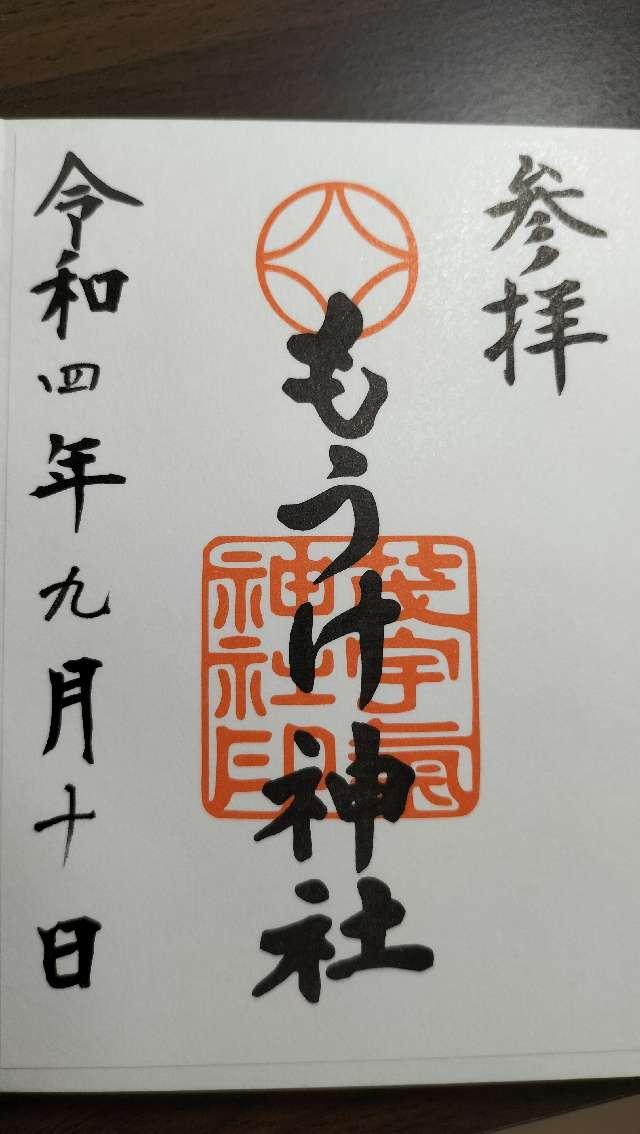 参拝
もうけ神社
茂宇気神社印
令和四年九月十日